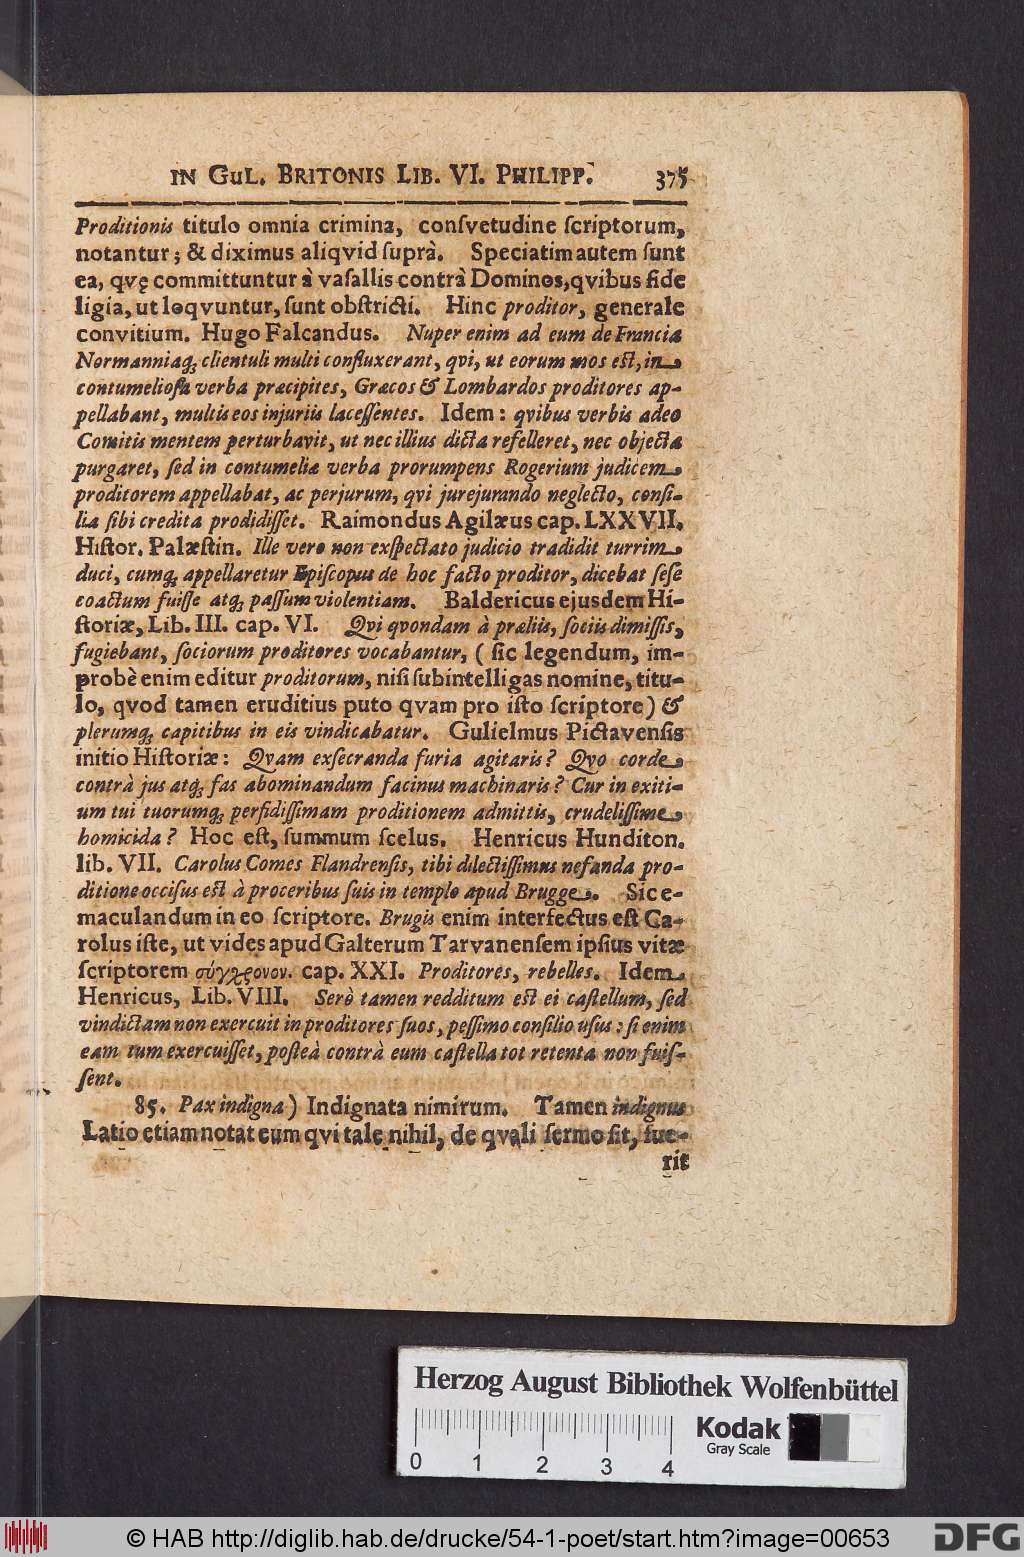 IN GUL. BRITONIS LIB. VI. PHILIPP. 375
Proditionis titulo omnia crimina, consvetudine scriptorum,
notantur; & diximus aliqvid suprà. Speciatim autem sunt
ea, qvę committuntur à vasallis contrà Dominos, qvibus fide
ligia, ut loqvuntur, sunt obstricti. Hinc proditor, generale
convitium. Hugo Falcandus. Nuper enim ad eum de Francia
Normanniaq; clientuli multi confluxerant, qvi, ut eorum mos est, in
contumeliosa verba præcipites, Græcos & Lombardos proditores ap-
pellabant, multis eos injuriis lacessentes. Idem: qvibus verbis adeo
Comitis mentem perturbavit, ut nec illius dicta refelleret, nec objecta
purgaret, sed in contumeliæ verba prorumpens Rogerium judicem
proditorem appellabat, ac perjurum, qvi jurejurando neglecto, consi-
lia sibi credita prodidisset. Raimondus Agilæus cap. LXXVII.
Histor. Palæstin. Ille vero non exspectato judicio tradidit turrim
duci, cumq; appellaretur Episcopus de hoc facto proditor, dicebat sese
coactum fuisse atq; passum violentiam. Baldericus ejusdem Hi-
storiæ, Lib. III. cap. VI. Qvi qvondam à præliis, sociis dimissis,
fugiebant, sociorum proditores vocabantur, ( sic legendum, im-
probè enim editur proditorum, nisi subintelligas nomine, titu-
lo, qvod tamen eruditius puto qvam pro isto scriptore) &
plerumq; capitibus in eis vindicabatur. Gulielmus Pictavensis
initio Historiæ: Qvam exsecranda furia agitaris? Qvo corde
contrà jus atq; fas abominandum facinus machinaris? Cur in exiti-
um tui tuorumq; perfidissimam proditionem admittis, crudelissime
homicida? Hoc est, summum scelus. Henricus Hunditon.
lib. VII. Carolus Comes Flandrensis, tibi dilectissimus nefanda pro-
ditione occisus est à proceribus suis in templo apud Brugge. Sic e-
maculandum in eo scriptore. Brugis enim interfectus est Ca-
rolus iste, ut vides apud Galterum Tarvanensem ipsius vitæ
scriptorem σύγχρονον. cap. XXI. Proditores, rebelles. Idem
Henricus, Lib. VIII. Serò tamen redditum est ei castellum, sed
vindictam non exercuit in proditores suos, pessimo consilio usus: si enim
eam tum exercuisset, posteà contrà eum castella tot retenta non fuis-
sent.
85. Pax indigna) Indignata nimirum. Tamen indignus
Latio etiam notat eum qvi tale nihil, de qvali sermo sit, fue-
rit
Herzog August Bibliothek Wolfenbüttel
Kodak
Gray Scale
0 1 2 3 4
© HAB http://diglib.hab.de/drucke/54-1-poet/start.htm?image=00653
DFG